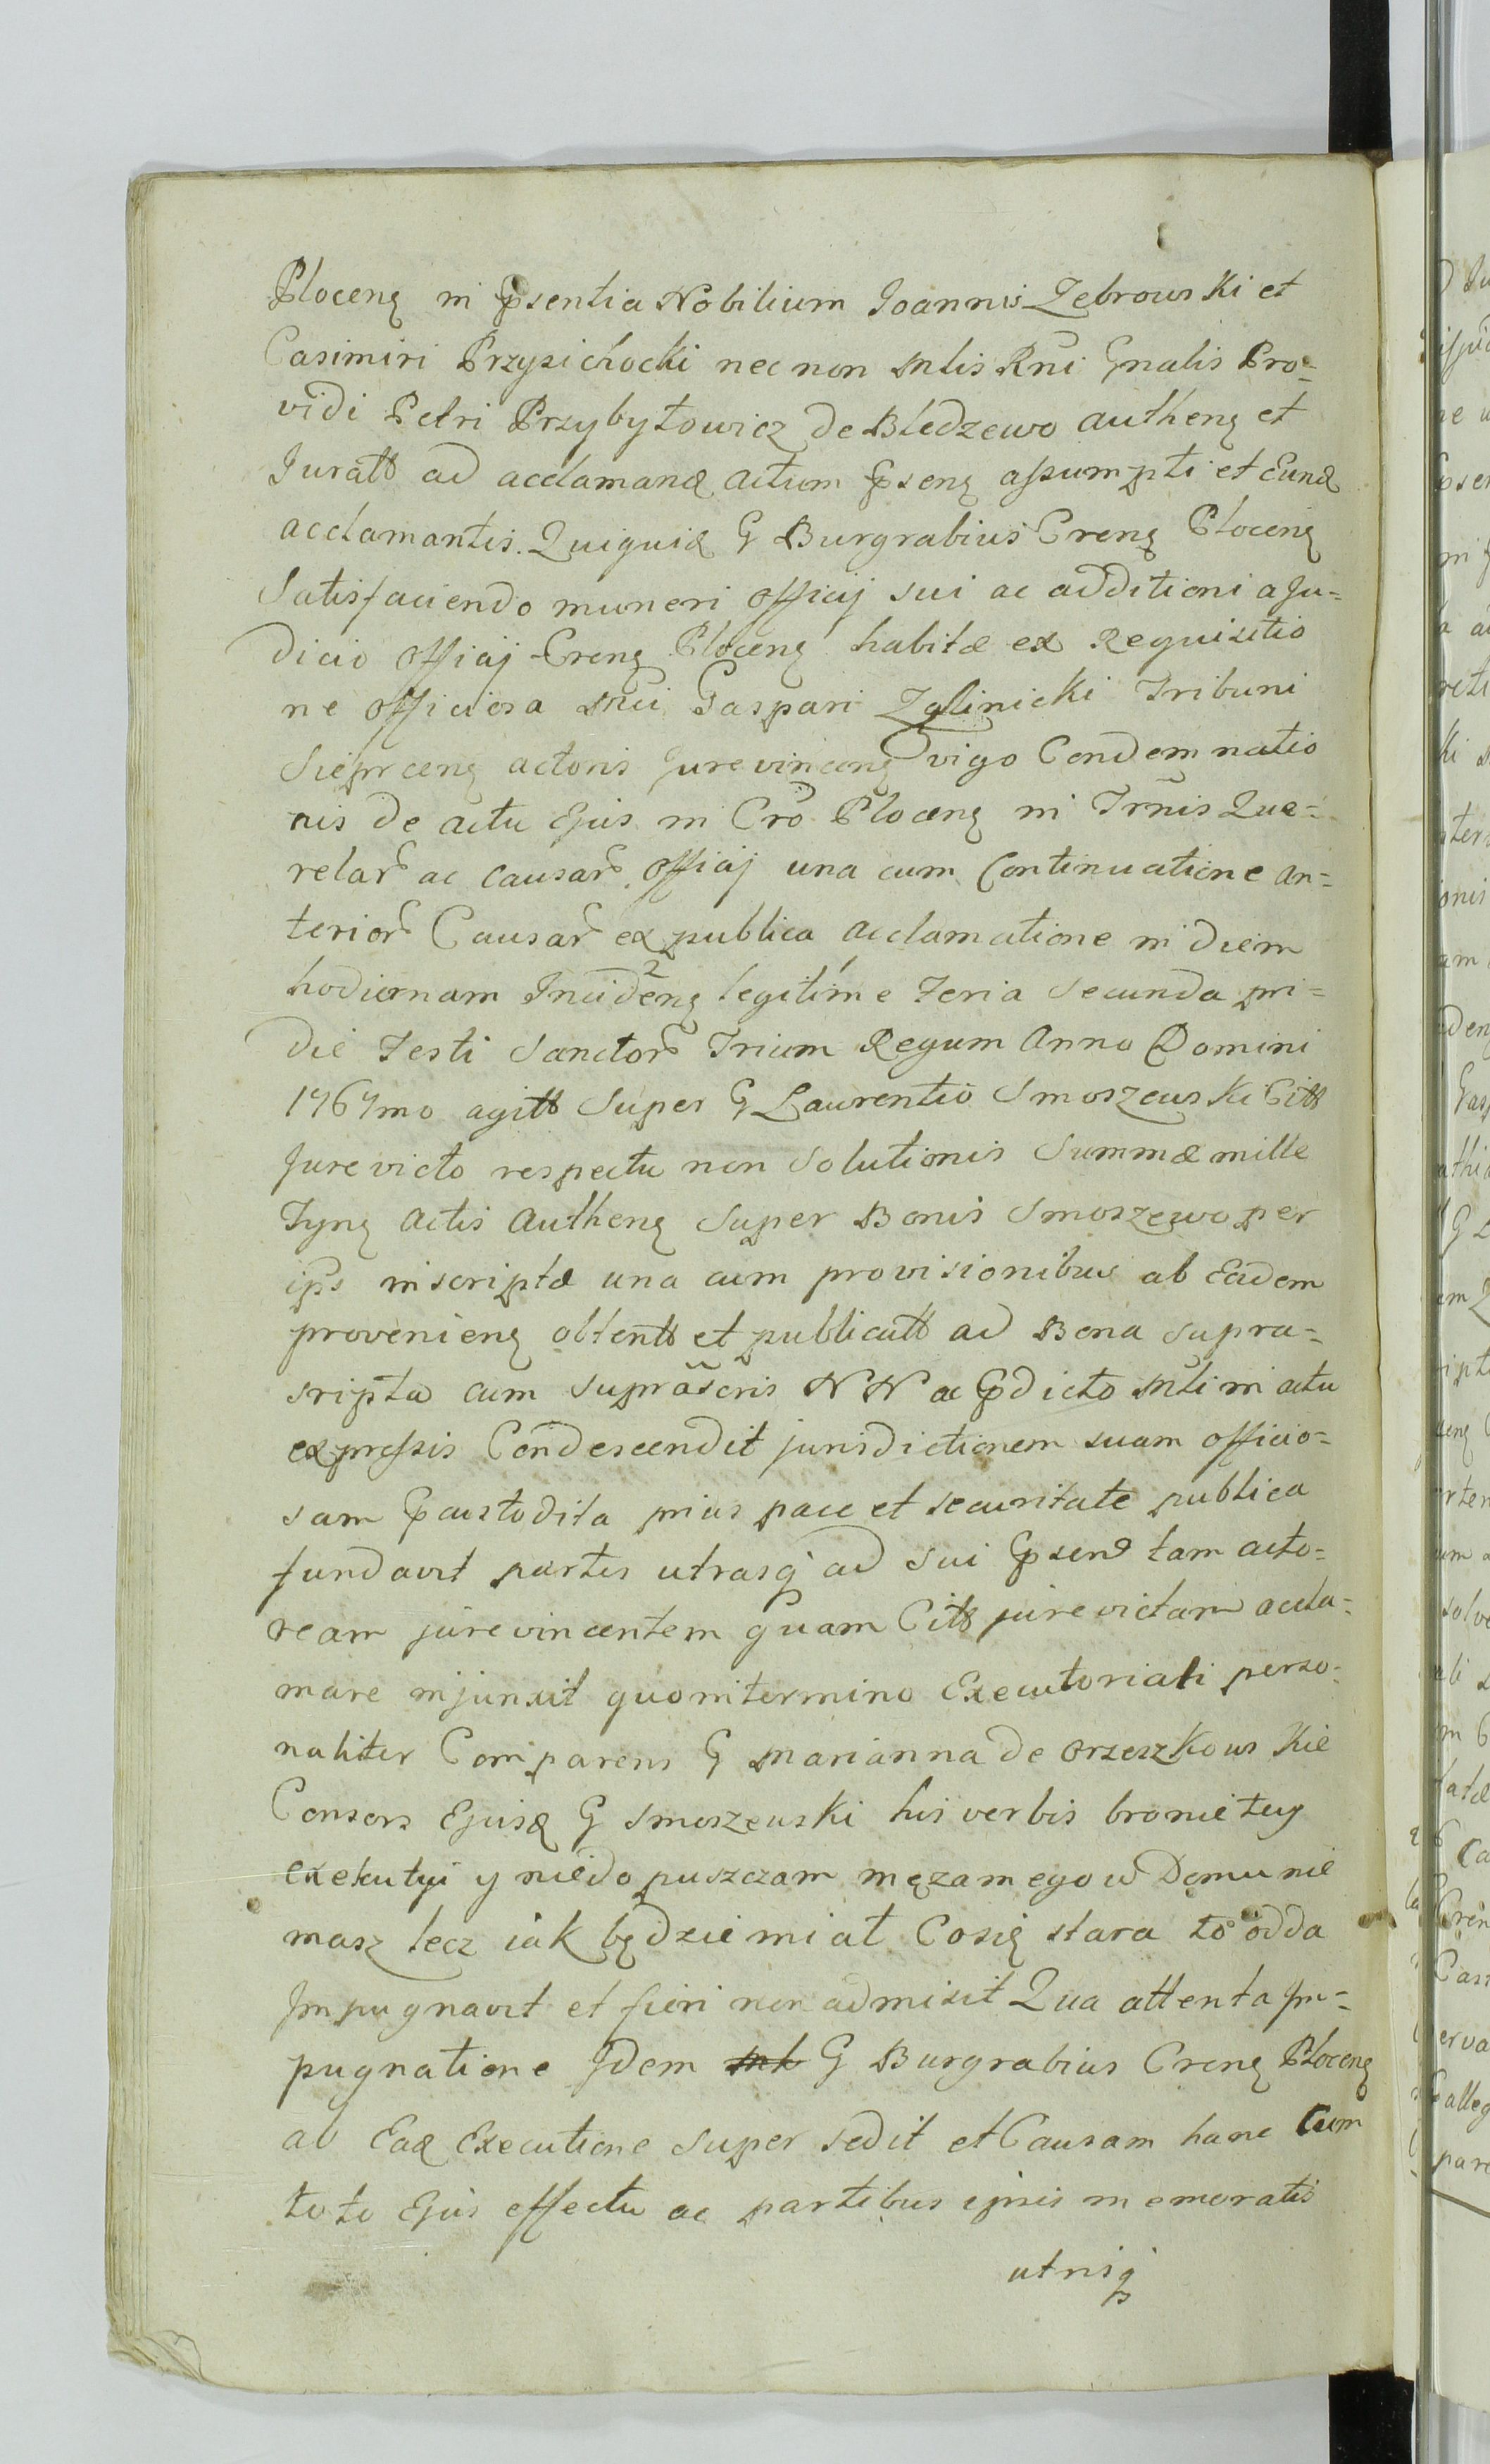 Plocenę in Pſsentia Nobilium Joannis Zebrowski et
Casimiri Przysichocki nec non Mlis Rni Gnalis Pro=
vidi Petri Przybyłowicz de Bledzewo authenę et
Juratt ad acclamandę actum Pſsenę aſsumpti et Eundę
acclamantis. Quiquidę G Burgrabius Crenę Plocenę
Satisfaciendo muneri officij sui ac additioni a Ju=
dicio officij Crenę Plocenę habitæ ex Requisitio
ne officiosa Mci Gaspari Zglinicki Tribuni
Sieprcenę actoris jurevincenę vigo Condemnatio
nis de actu Ejus in Cro Plocenę in Trnis Que=
relar ac causar officij una cum Continuatione an=
terior Causar ex publica acclamatione in diem
hodiernam Incidenę legitime Feria Secunda pri=
die Festi Sanctor Trium Regum Anno Domini
1767mo agitt Super G Laurentio Smoszewski Citt
Jurevicto respectu non Solutionis Summæ mille
Tynę Actis Authenę Super Bonis Smoszewo per
ips inscriptæ una cum provisionibus ab Eadem
provenienę obtentt et publicatt ad Bona supra=
sripta cum suprascris NN ac Pdicto Mli in actu
expreſsis Condescendit jurisdictionem suam officio=
sam Pcustodita prius pace et securitate publica
fundavit partes utrasq ad sui Pſsenę tam acto=
ream jurevincentem quam Citt jurevictam accla=
mare injunxit quo in termino Executoriali perso=
naliter Comparens G Marianna de Orzeszkowskie
Consors Ejusdę G Smoszewski his verbis bronię tey
exekutyi y niedopuszczam męza mego w Domu nie
masz lecz iak będzie miał Co się stara to odda
Impugnavit et fieri non admisit Qua attenta Im=
pugnatione Jdem G Burgrabius Crenę Plocenę
ab Eadę Executione super sedit et Causam hanc Cum
toto Ejus effectu ac partibus ipsis memoratis
utrisq